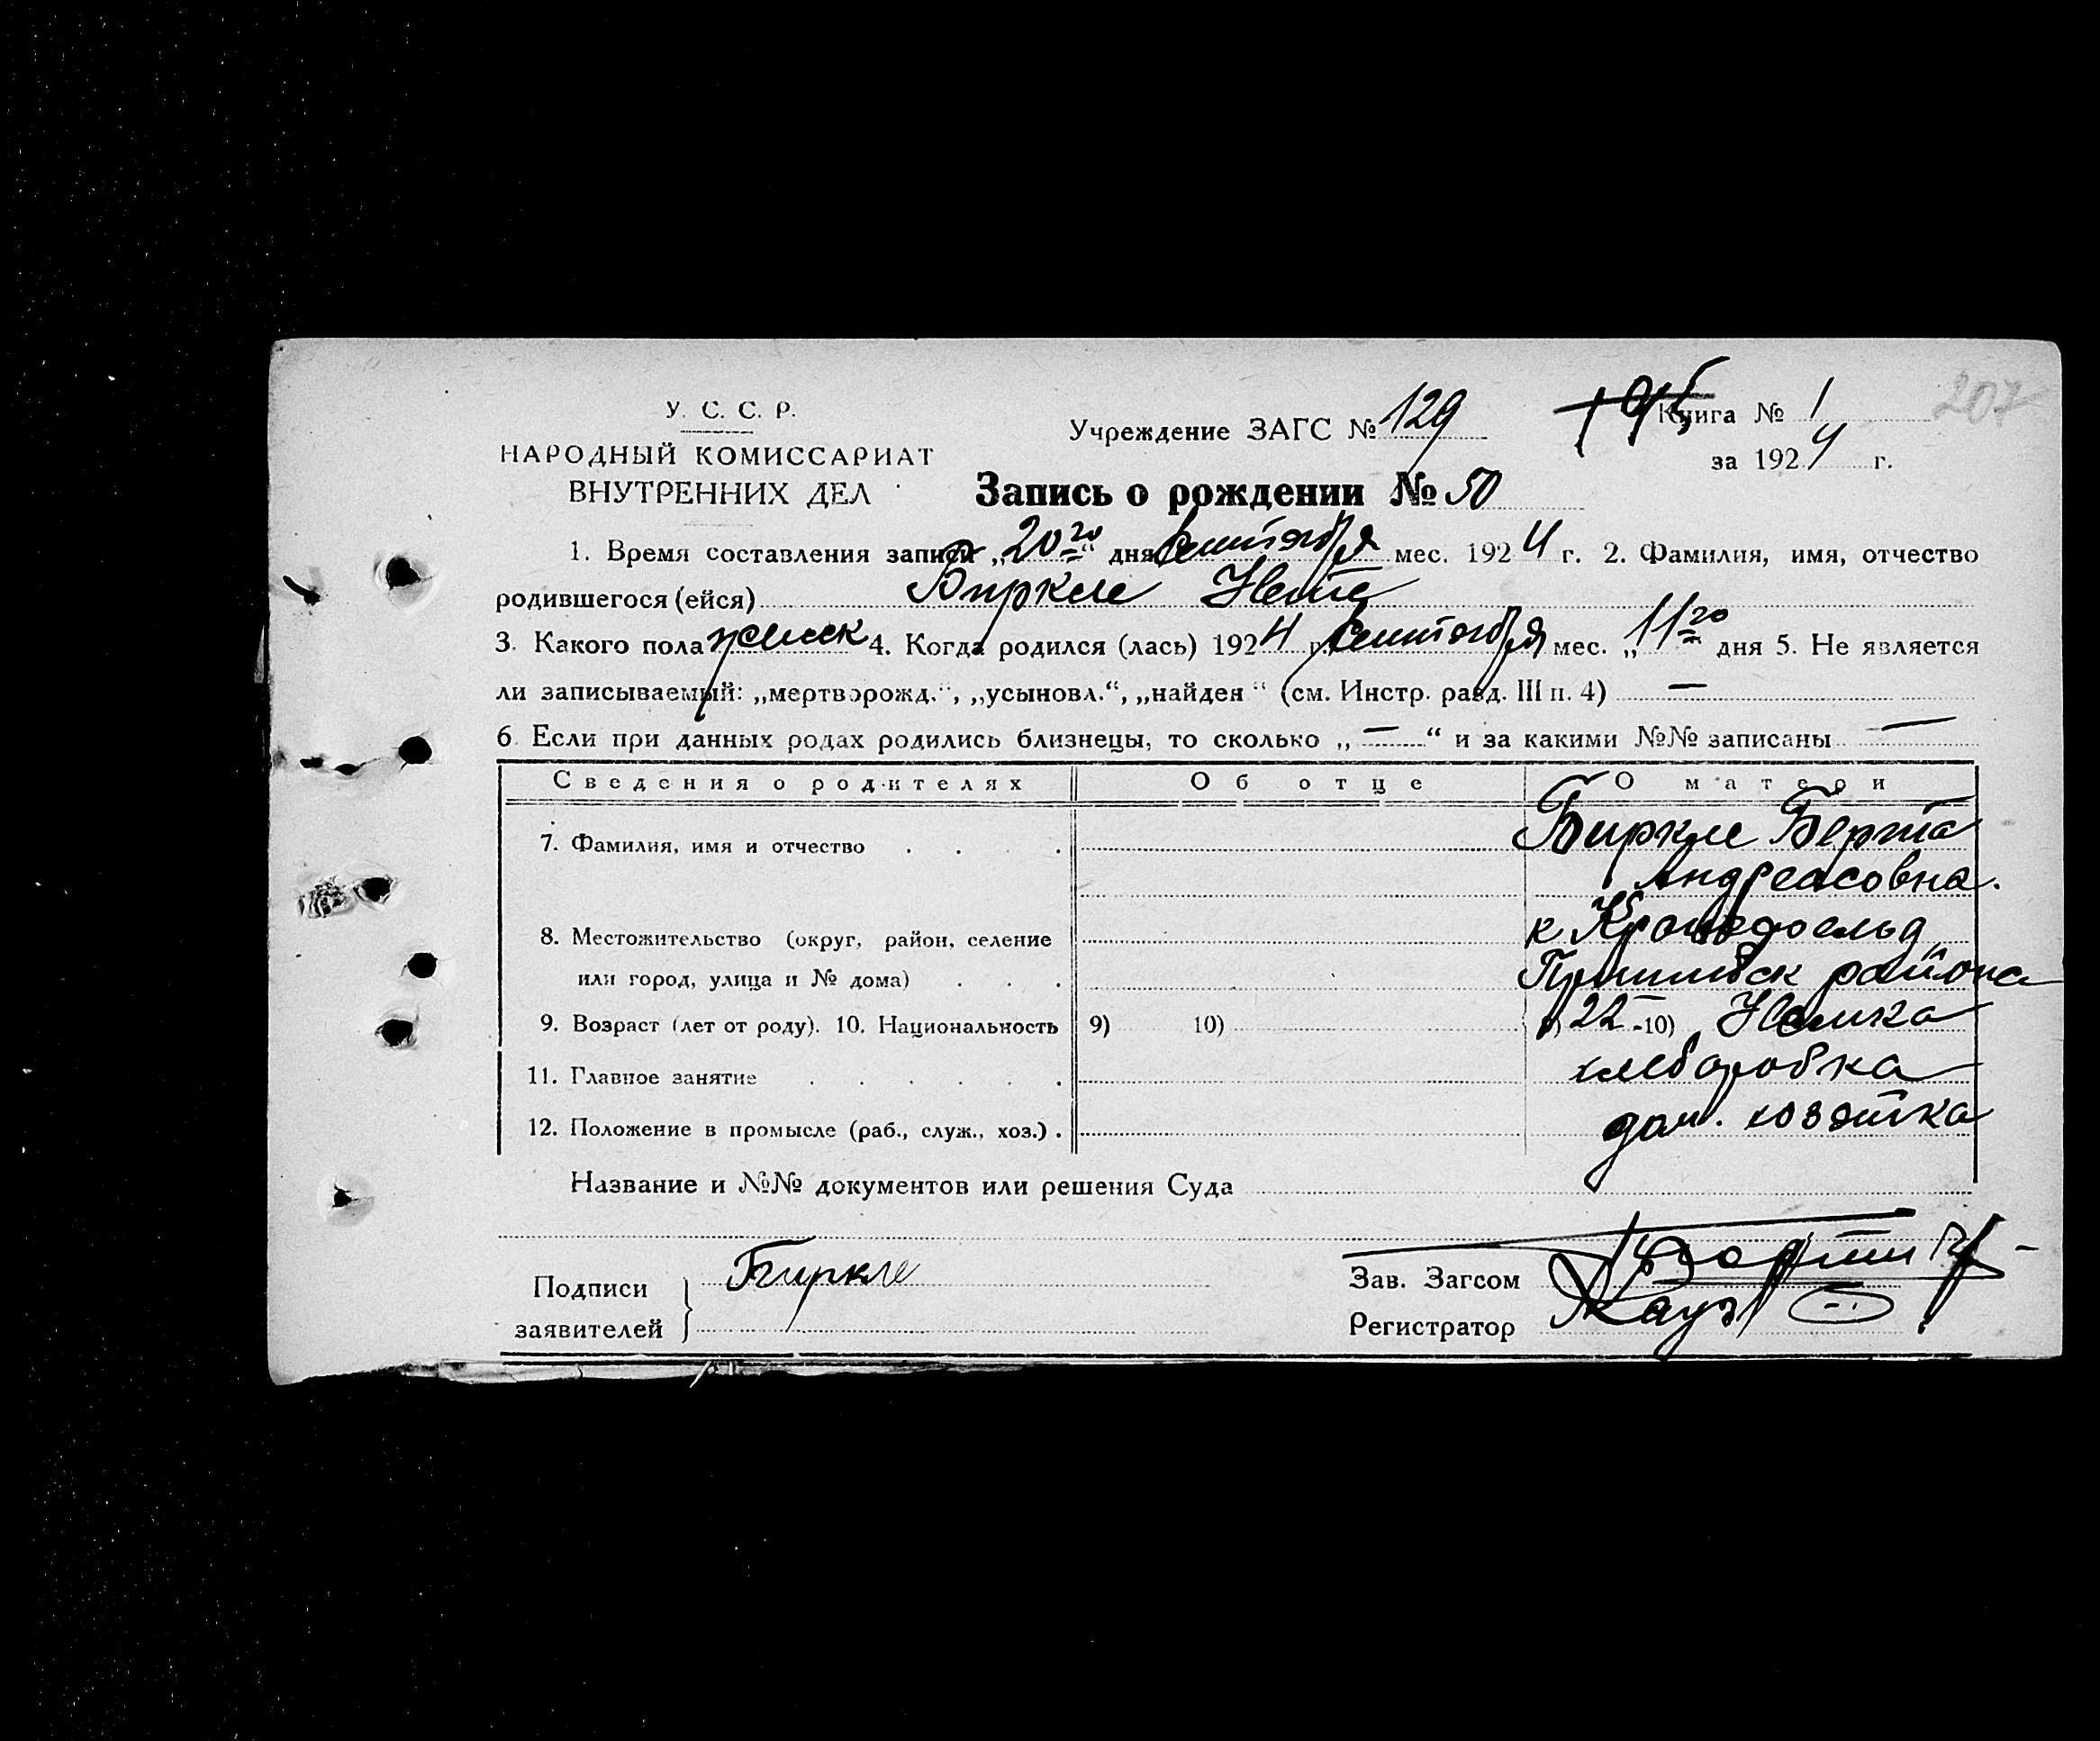 207
У. С. С. Р.
НАРОДНЫЙ КОМИССАРИАТ
ВНУТРЕННИХ ДЕЛ
Учреждение ЗАГС № 129
Книга № 1
за 1924 г.
Запись о рождении № 50
1. Время составления записи „20го“ дня Сентября мес. 1924 г. 2. Фамилия, имя, отчество
родившегося (ейся) Биркле
3. Какого пола женск 4. Когда родился (лась) 1924 г. Сентября мес. „11го дня 5. Не является
ли записываемый: „мертворожд.“, „усыновл.“, „найден“ (см. Инстр. разд. III п. 4) —
6. Если при данных родах родились близнецы, то сколько „—“ и за какими №№ записаны —
Сведения о родителях Об отце О матери
7. Фамилия, имя и отчество . . . . Биркле Берта
Андреасовна.
8. Местожительство (округ, район, селение к Кронсфельд
или город, улица и № дома) . . . Пришибск района
9. Возраст (лет от роду). 10. Национальность 9) 10) 9) 22 - 10) Немка
11. Главное занятие . . . . . . хлеборобка
12. Положение в промысле (раб., служ., хоз.) . дом. хозяйка
Название и №№ документов или решения Суда
Подписи
заявителей } Биркле
Зав. Загсом
Регистратор